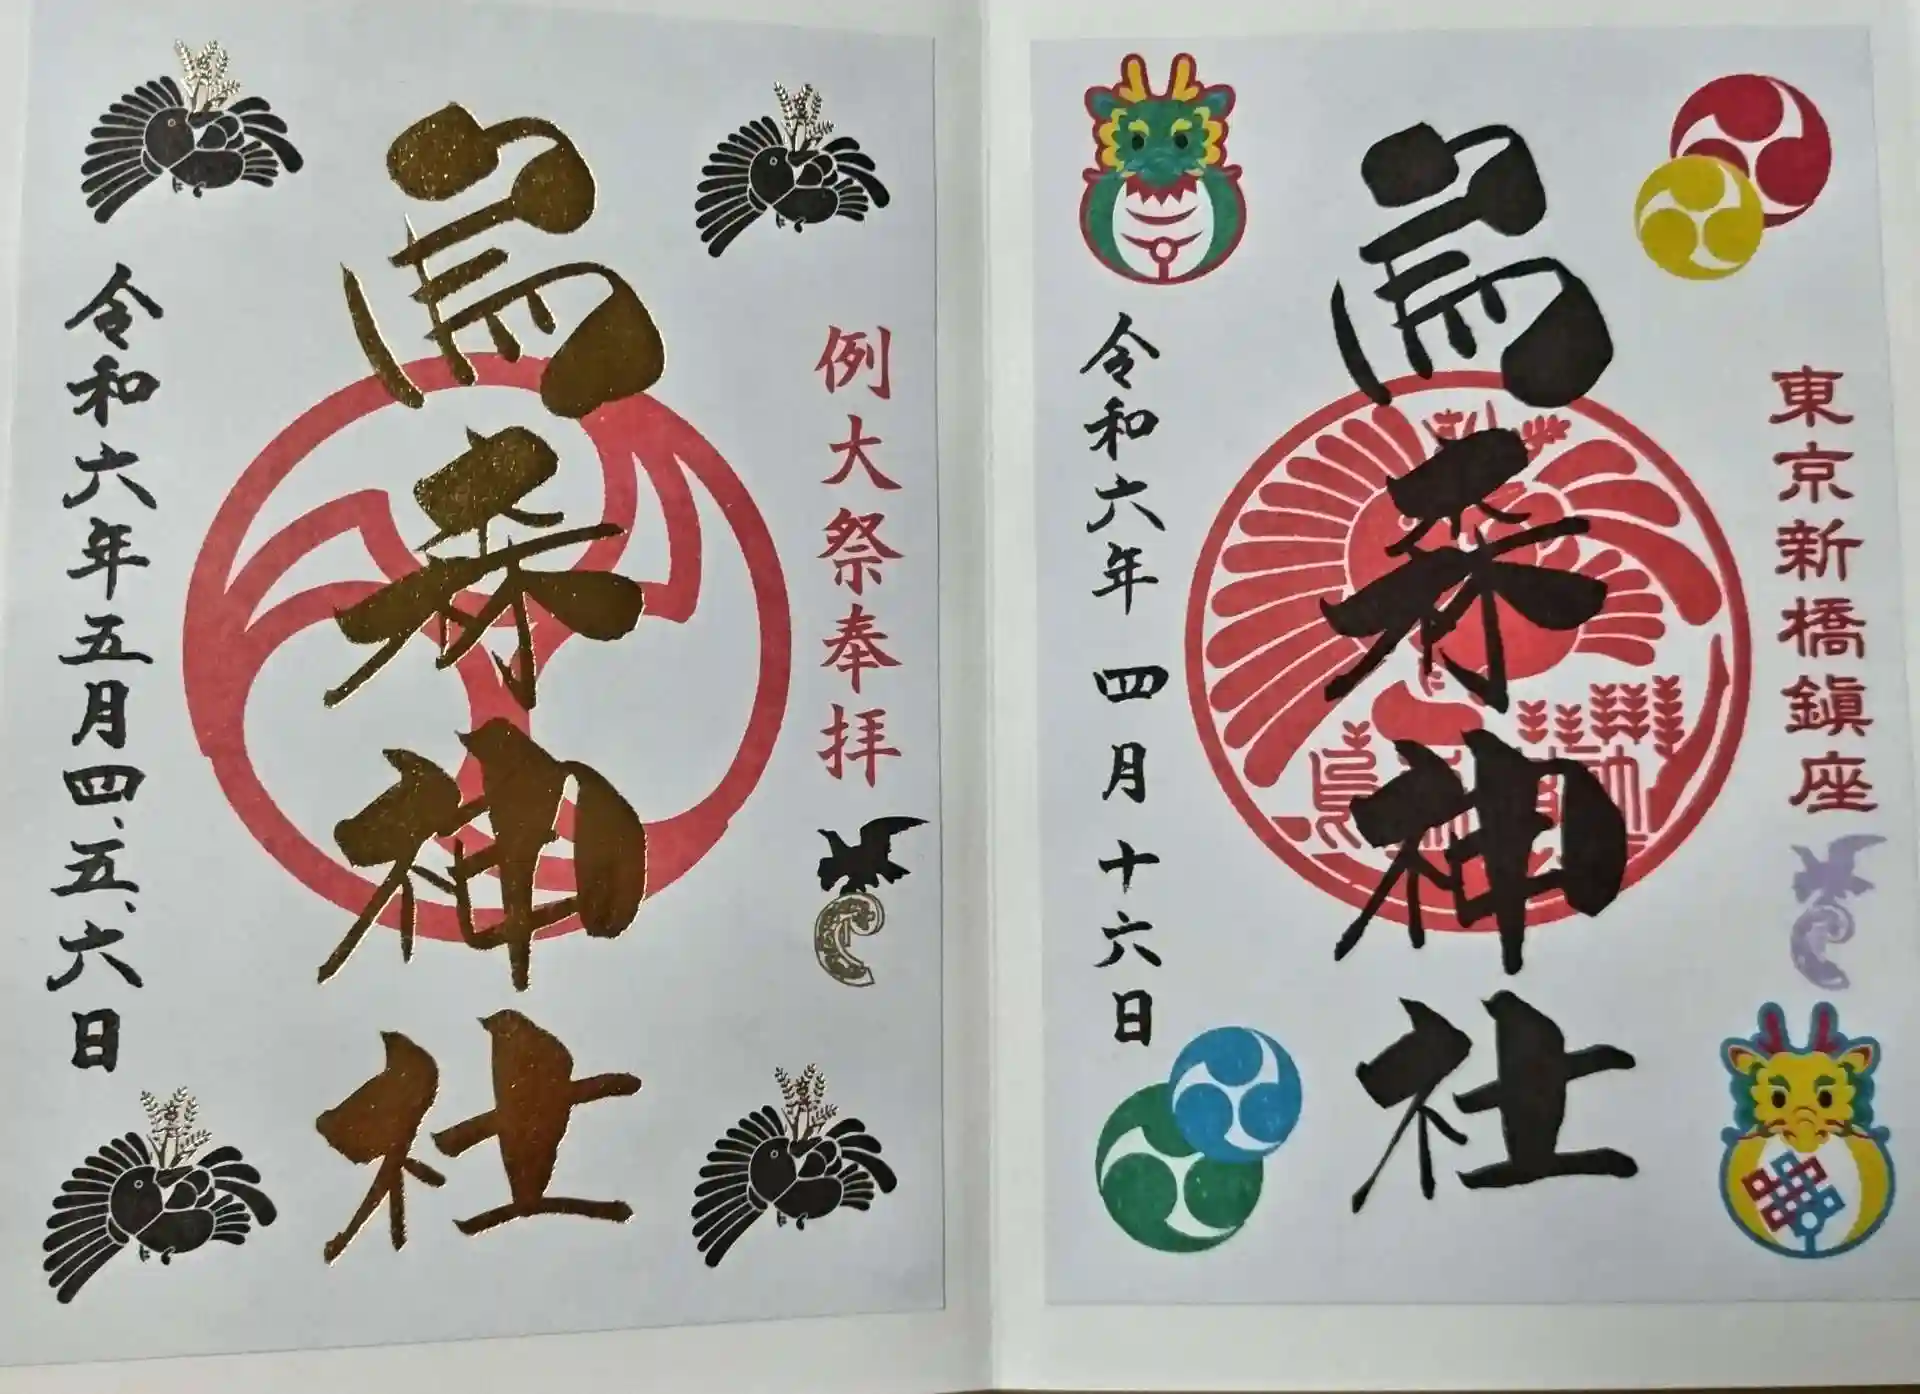 東京新橋鎮座
烏森神社
令和六年四月十六日
例大祭奉拝
烏森神社
令和六年五月四、五、六日